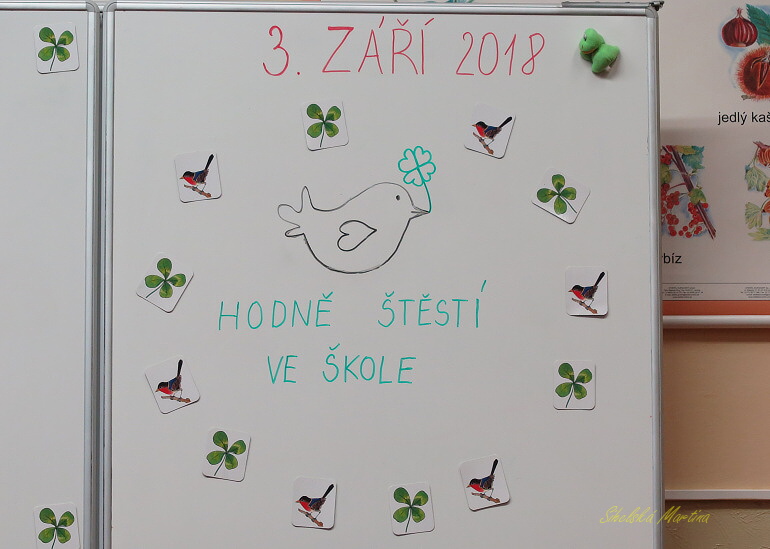 3. ZÁŘÍ 2018
HODNĚ ŠTĚSTÍ
VE ŠKOLE
jedlý kaš
bíz